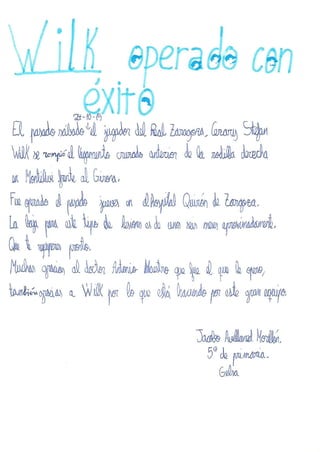 Wilk operado con
éxito
El pasado sábado el jugador del Real Zaragoza, Cezary Stefan
Wilk se rompió el ligamento cruzado anterior de la rodilla derecha
en Montilivi frente al Girona.
Fue operado el pasado jueves en el hospital Quirón de Zaragoza.
La baja para este tipo de lesiones es de unos seis meses aproximadamente.
Que te recuperes pronto.
Muchas gracias al doctor Antonio Maestro que fue el que le opero,
también gracias a Wilk por lo que está haciendo por este gran equipo.
Jacobo Avellaned Morellón.
5º de primaria.
Gelsa